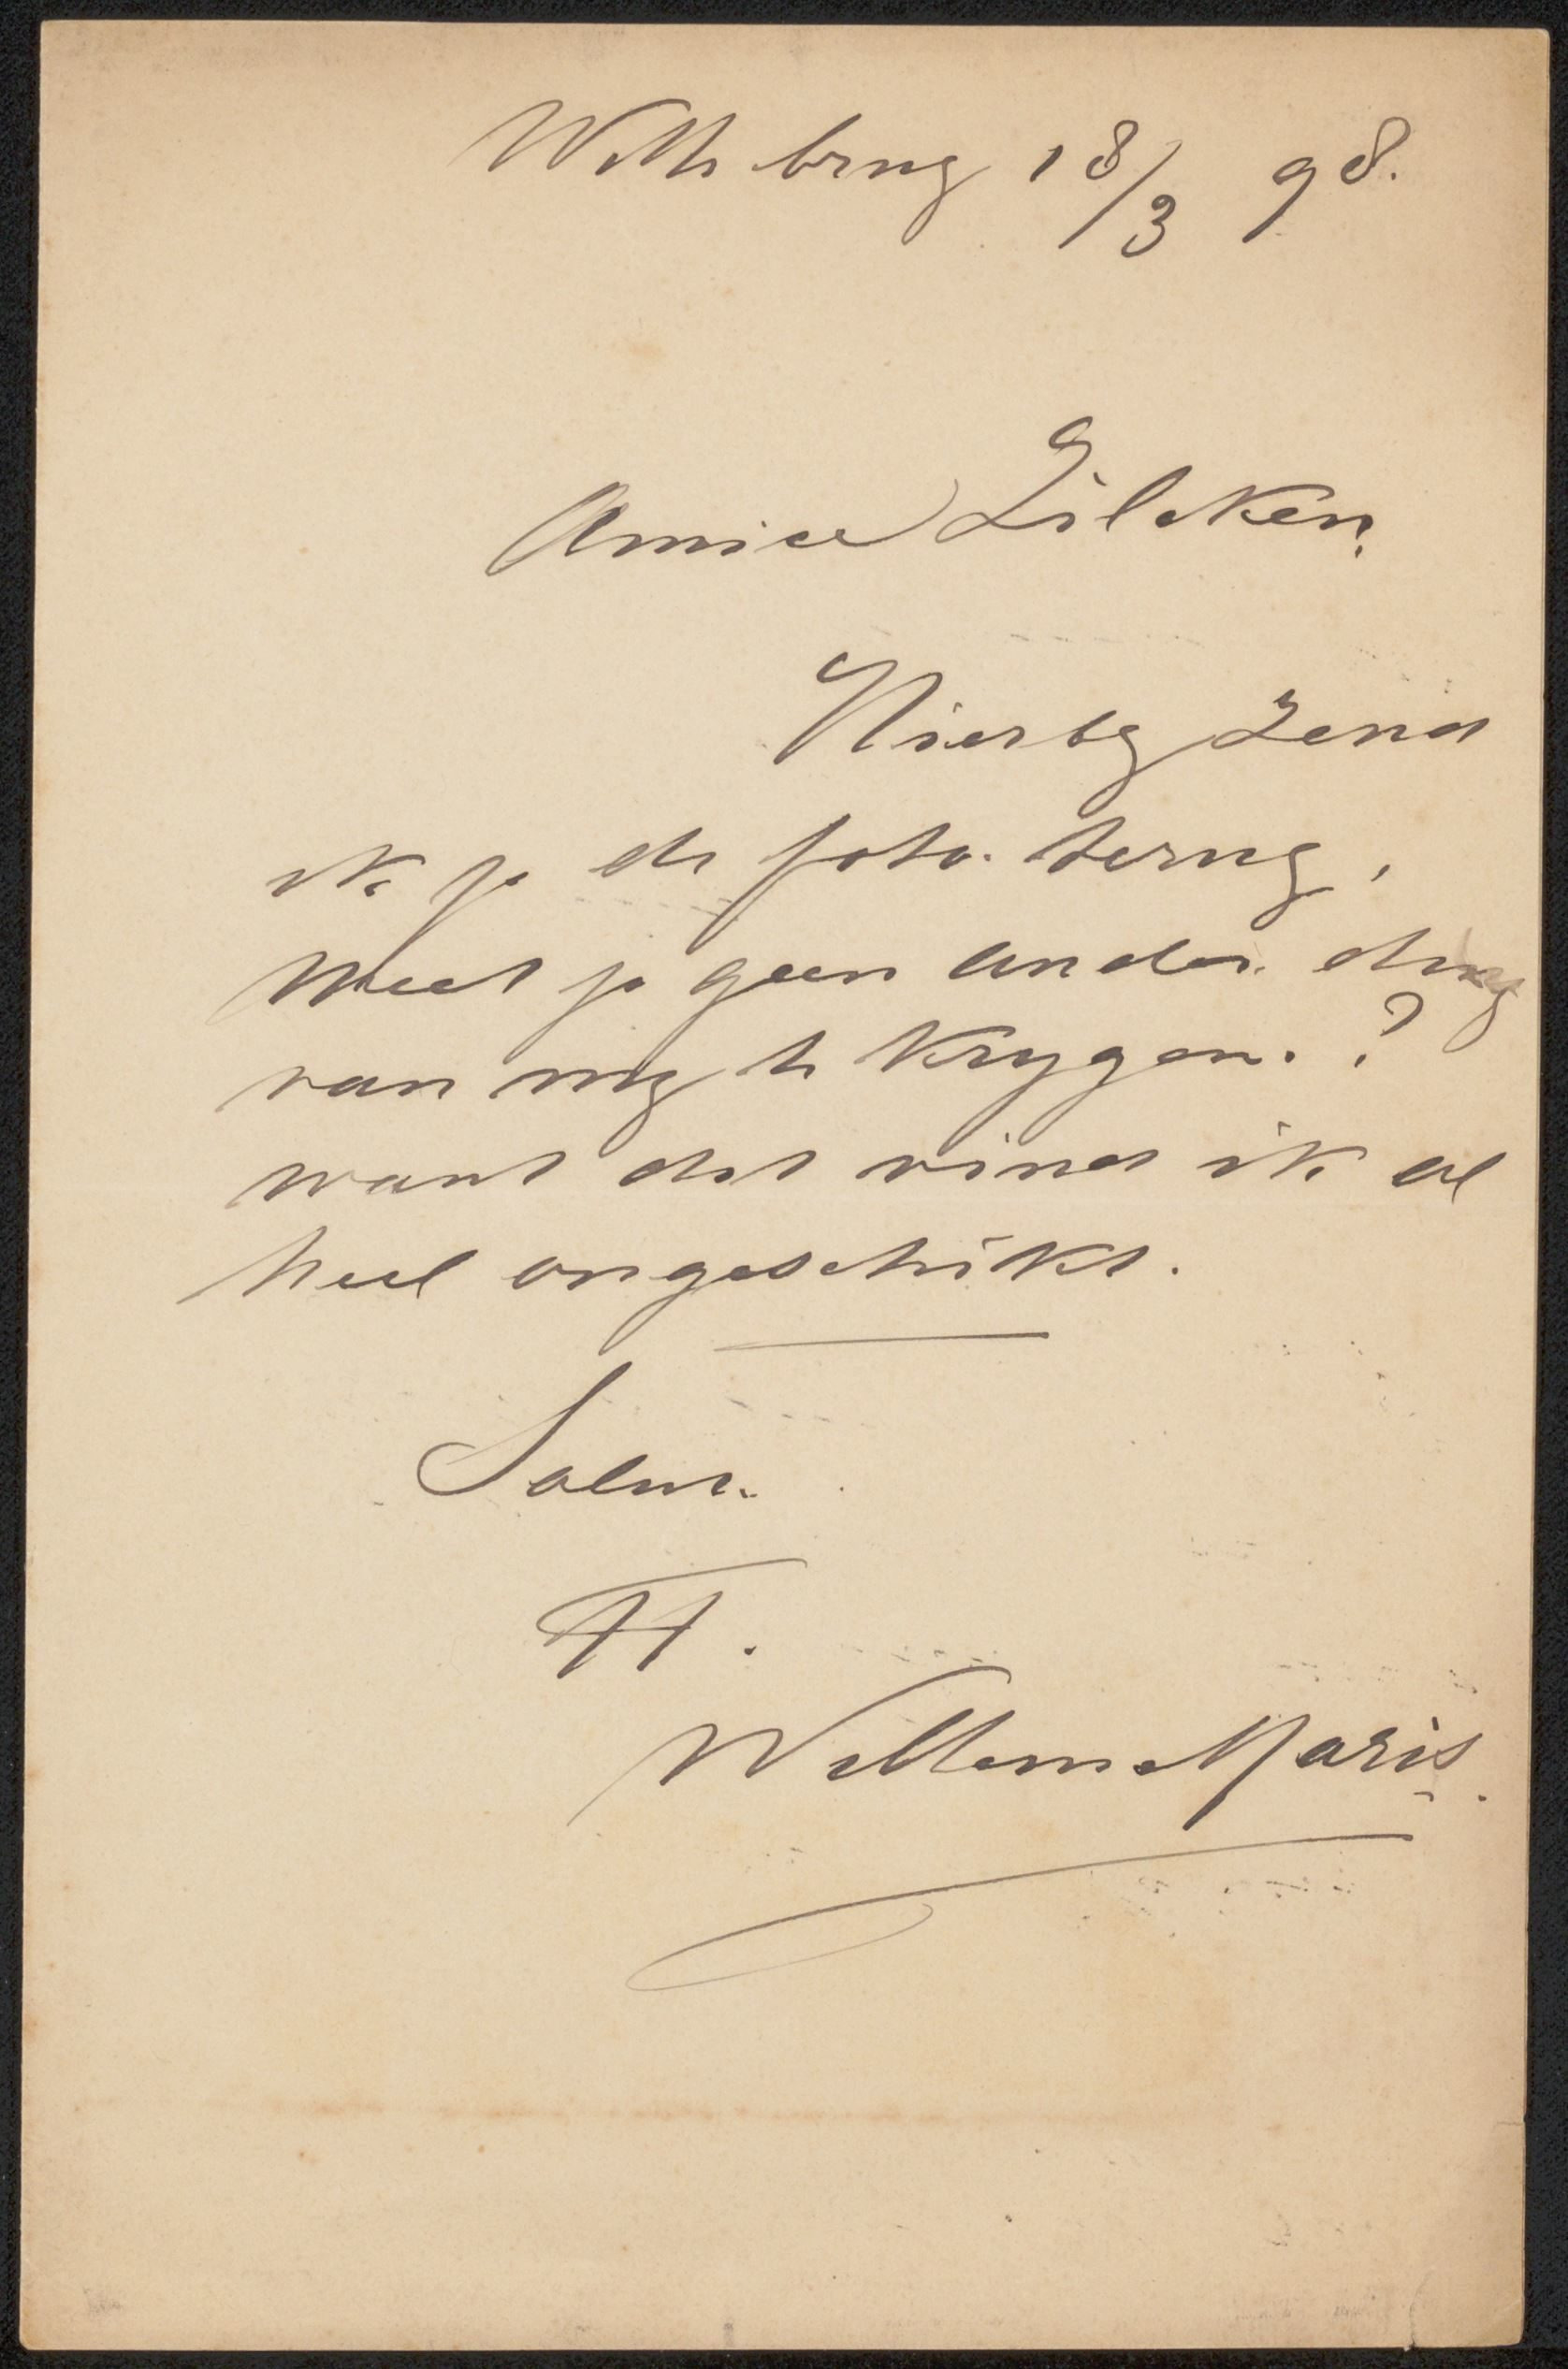 Witte brug 18/3 98.
Amice Zilcken,
Hierby zend
ik je de foto. terug,
Weet je geen ander ding
van my te krygen. ?
want dit vind ik al
heel ongeschikt.
Saluut.
tt.
Willem Maris.